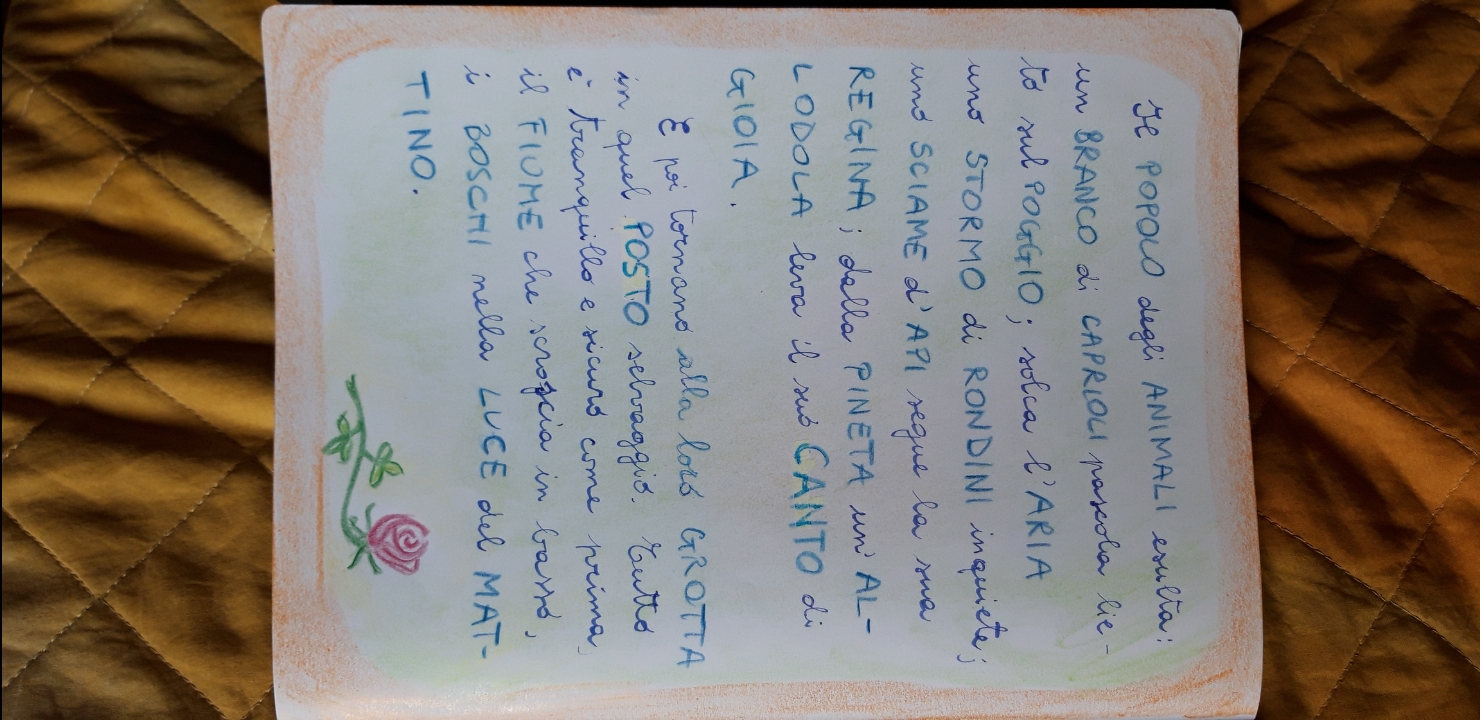 Il POPOLO degli ANIMALI esulta:
un BRANCO di CAPRIOLI pascola lie-
to sul POGGIO; solca l'ARIA
uno STORMO di RONDINI inquiete;
uno SCIAME d'API segue la sua
REGINA; dalla PINETA un'AL-
LODOLA leva il suo CANTO di
GIOIA.
E poi tornano alla loro GROTTA
in quel POSTO selvaggio. Tutto
è tranquillo e sicuro come prima,
il FIUME che scroscia in basso,
i BOSCHI nella LUCE del MAT-
TINO.